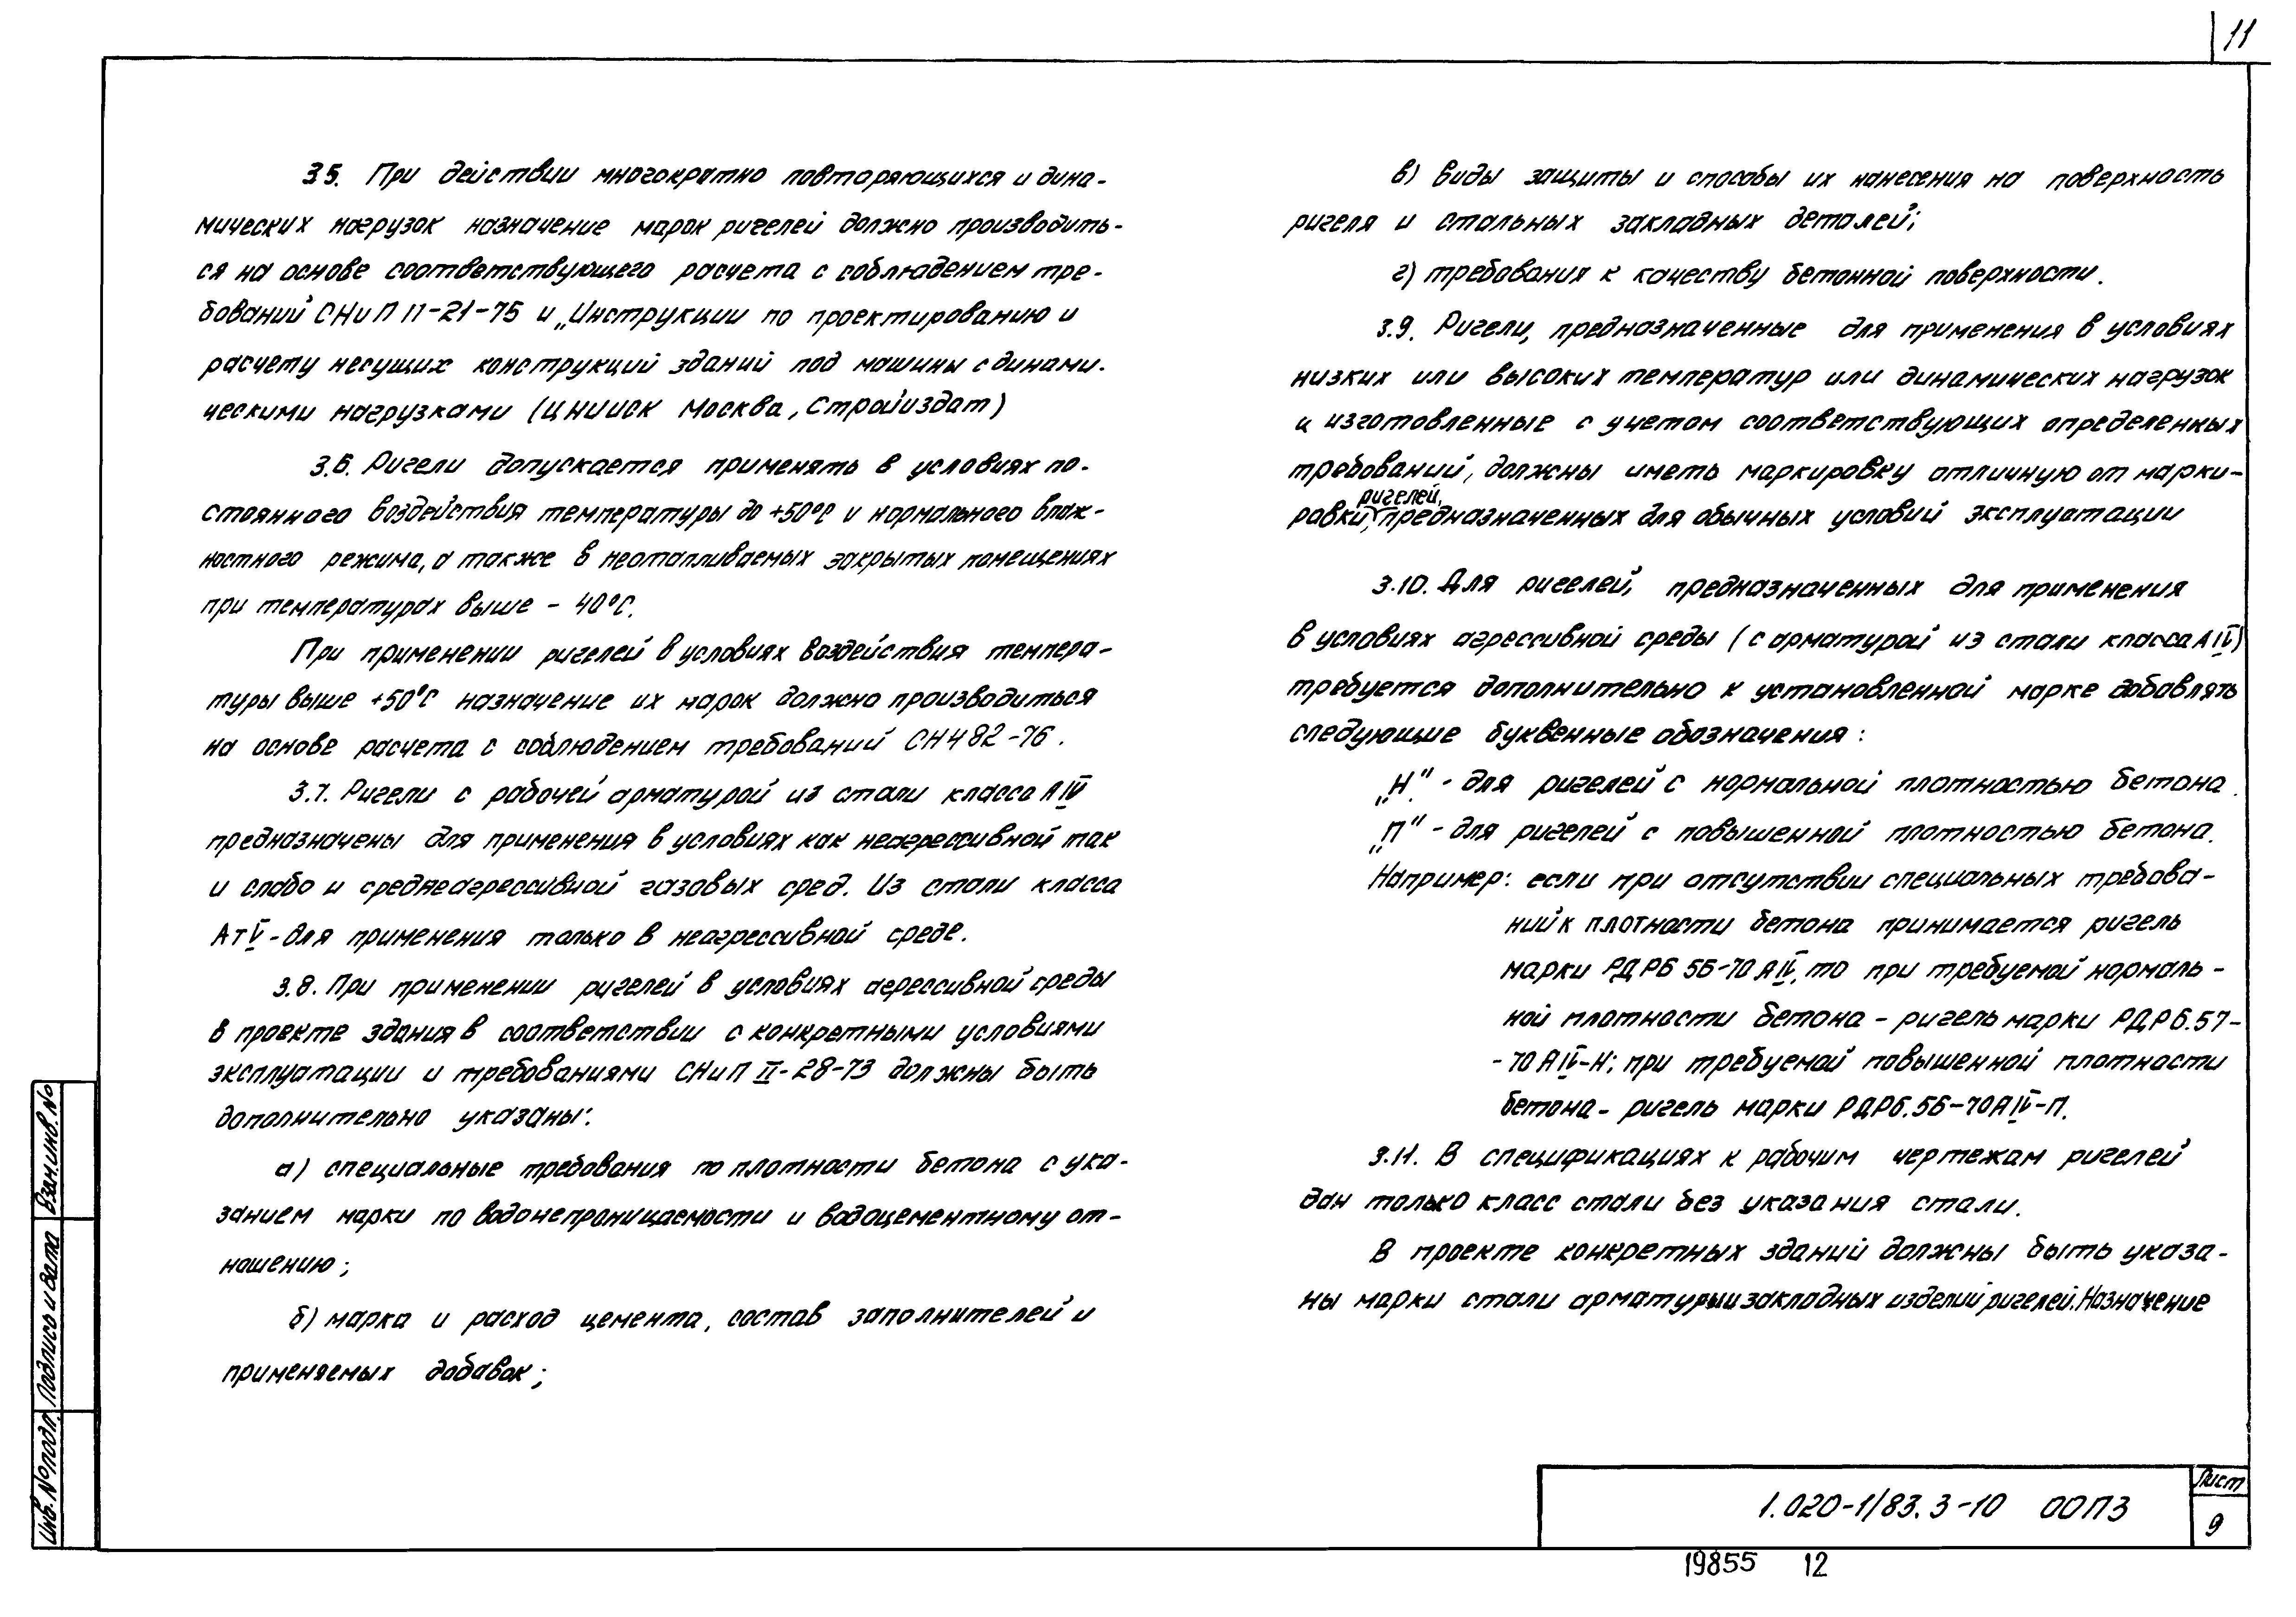 11
3.5. При действии многократно повторяющихся и дина-
мических нагрузок назначение марок ригелей должно производить-
ся на основе соответствующего расчета с соблюдением тре-
бований СНиП II-21-75 и „Инструкции по проектированию и
расчету несущих конструкций зданий под машины с динами-
ческими нагрузками (ЦНИИСК Москва, Стройиздат)
3.6. Ригели допускается применять в условиях по-
стоянного воздействия температуры до +50°С и нормального влаж-
ностного режима, а также в неотапливаемых закрытых помещениях
при температурах выше - 40°С.
При применении ригелей в условиях воздействия темпера-
туры выше +50°С назначение их марок должно производиться
на основе расчета с соблюдением требований СН 482-76.
3.7. Ригели с рабочей арматурой из стали класса АIV
предназначены для применения в условиях как неагрессивной так
и слабо и среднеагрессивной газовых сред. Из стали класса
АтV - для применения только в неагрессивной среде.
3.8. При применении ригелей в условиях агрессивной среды
в проекте здания в соответствии с конкретными условиями
эксплуатации и требованиями СНиП II-28-73 должны быть
дополнительно указаны:
а) специальные требования по плотности бетона с ука-
занием марки по водонепроницаемости и водоцементному от-
ношению;
б) марка и расход цемента, состав заполнителей и
применяемых добавок;
в) виды защиты и способы их нанесения на поверхность
ригеля и стальных закладных деталей;
г) требования к качеству бетонной поверхности.
3.9. Ригели, предназначенные для применения в условиях
низких или высоких температур или динамических нагрузок
и изготовленные с учетом соответствующих определенных
требований, должны иметь маркировку отличную от марки-
ровки ригелей, предназначенных для обычных условий эксплуатации
3.10. Для ригелей, предназначенных для применения
в условиях агрессивной среды (с арматурой из стали класса АIV)
требуется дополнительно к установленной марке добавлять
следующие буквенные обозначения:
„Н" - для ригелей с нормальной плотностью бетона.
„П" - для ригелей с повышенной плотностью бетона.
Например: если при отсутствии специальных требова-
ний к плотности бетона принимается ригель
марки РДР6 56-70 АIV, то при требуемой нормаль-
ной плотности бетона - ригель марки РДР6.57-
-70 АIV-Н; при требуемой повышенной плотности
бетона - ригель марки РДР6.56-70АIV-П.
3.11. В спецификациях к рабочим чертежам ригелей
дан только класс стали без указания стали.
В проекте конкретных зданий должны быть указа-
ны марки стали арматуры и закладных изделий ригелей. Назначение
Взам.инв.№
Подпись и дата
Инв.№ подл.
1.020-1/83.3-10 00ПЗ
Лист
9
19855 12